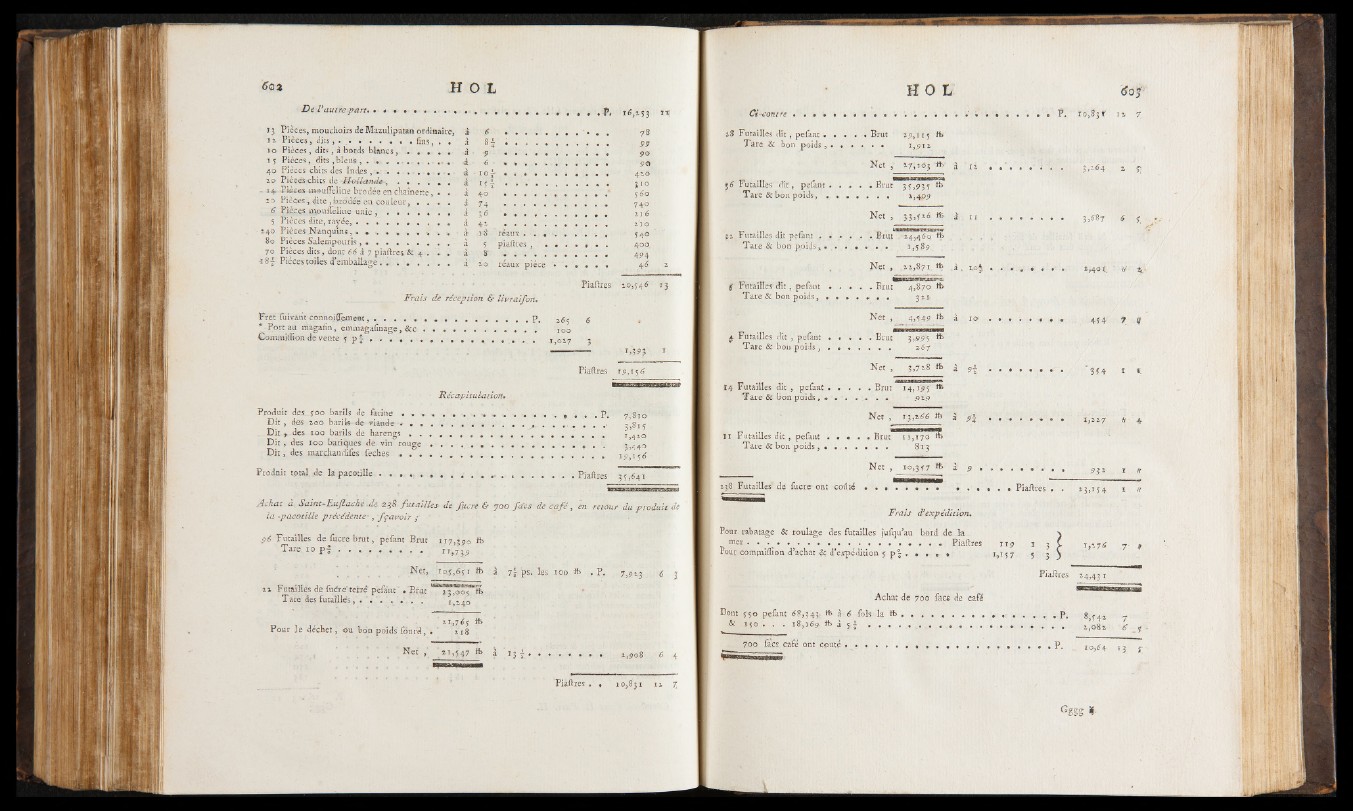 602 HOL
De l'autre part. . . . . P. 16,153 11
13 Pièces, mouchoirs de Mazulipatan ordinaire, à 6 . . . 78
12 Pièces, dits, . . . fins, . . à 8¼ . . . 99
10 Pièces, dits, à bords blancs, . . . à 9 . . . 90
15 Pièces, dits, bleus, . . . à 6 . . . 90
40 Pièces chits des Indes, . . . à 10½ . . . 420
20 Pièces chits de Hollande, . . . à 15½ . . . 310
14 Pièces mouſſeline brodée en chaînette, . . à 40 . . . 560
10 Pièces, dite, brodée en couleur, . . . à 74 . . . 740
6 Pièces mouſſeline unie, . . . à 36 . . . 216
5 Pièces dite, rayée, . . . à 42 . . . 210
240 Pièces Nanquins, . . . à 18 réaux . . . 540
80 Pièces Salempouris, . . . à 5 piaſtres, . . . 400
70 Pièces dits, dont 68 à 7 piaſtres & 4 . . . à 8 . . . 494
18½ Pièces toiles d'emballage . . . à 20 réaux pièce . . . 46 2
Piaſtres 20,546 13
Frais de réception & livraiſon.
Fret ſuivant connoiſſement, . . . P. 265 6
* Port au magaſin, emmagaſinage, &c . . . 100
Commiſſion de vente 5 p 0/0 . . . 1,027 3
1,393 1
Piaſtres 19,156
Récapitulation.
Produit des 500 barils de farine . . . P. 7,810
Dit, des 200 barils de viande . . . 3,815
Dit, des 100 barils de harengs . . . 1,420
Dit, des 100 bariques de vin rouge . . . 3,440
Dit, des marchandiſes ſèches . . . 19,156
Produit total de la pacotille . . . Piaſtres 35,641
Achat à Saint-Euſtache de 238 futailles de ſucre & 700 ſacs de café, en retour du produit de
la pacotille précédente, ſçavoir ;
96 Futailles de ſucre brut, peſant Brut 117,390 ℔
Tare 10 p 0/0 . . . 11,739
Net, 105,651 ℔ à 7½ ps. les 100 ℔ . P. 7,923 6 3
22 Futailles de ſucre terré peſant . Brut 23,005 ℔
Tare des futailles, . . . 1,240
21,765 ℔
Pour le déchet, ou bon poids ſonné, . 218
Net, 21,547 ℔ à 13½ . . . 2,908 6 4
Piaſtres . . 10,831 12 7
HOL 603
Ci-contre . . . P. 10,831 12 7
28 Futailles dit, peſant . . . Brut 29,115 ℔
Tare & bon poids, . . . 1,912
Net, 27,203 ℔ à 12 . . . 3,264 2 5
36 Futailles dit, peſant . . . Brut 35,935 ℔
Tare & bon poids, . . . 2,409
Net, 33,526 ℔ à 11 . . . 3,687 6 5
22 Futailles dit peſant . . . Brut 24,460 ℔
Tare & bon poids, . . . 1,589
Net, 22,871 ℔ à 10½ . . . 2,401 〃 4
8 Futailles dit, peſant . . . Brut 4,870 ℔
Tare & bon poids, . . . 321
Net, 4,549 ℔ à 10 . . . 454 7 〃
4 Futailles dit, peſant . . . Brut 3,995 ℔
Tare & bon poids, . . . 267
Net, 3,728 ℔ à 9½ . . . 354 1 1
14 Futailles dit, peſant . . . Brut 14,195 ℔
Tare & bon poids, . . . 929
Net, 13,266 ℔ à 9¼ . . . 1,227 〃 4
11 Futailles dit, peſant . . . Brut 11,170 ℔
Tare & bon poids, . . . 813
Net, 10,357 ℔ à 9 . . . 932 1 〃
238 Futailles de ſucre ont coûté . . . Piaſtres . . 23,154 1 〃
Frais d'expédition.
Pour rabatage & roulage des futailles juſqu'au bord de la
mer . . . Piaſtres 119 1 3
Pour commiſſion d'achat & d'expédition 5 p 0/0 . . . 1,157 5 3 } 1,276 7 〃
Piaſtres 24,431
Achat de 700 ſacs de café
Dont 550 peſant 68,343 ℔ à 6 ſols la ℔ . . . P. 8,542 7
& 150 . . . 18,169 ℔ à 5½ . . . 2,082 6 5
700 ſacs café ont couté . . . P. 10,64 13 5
Gggg